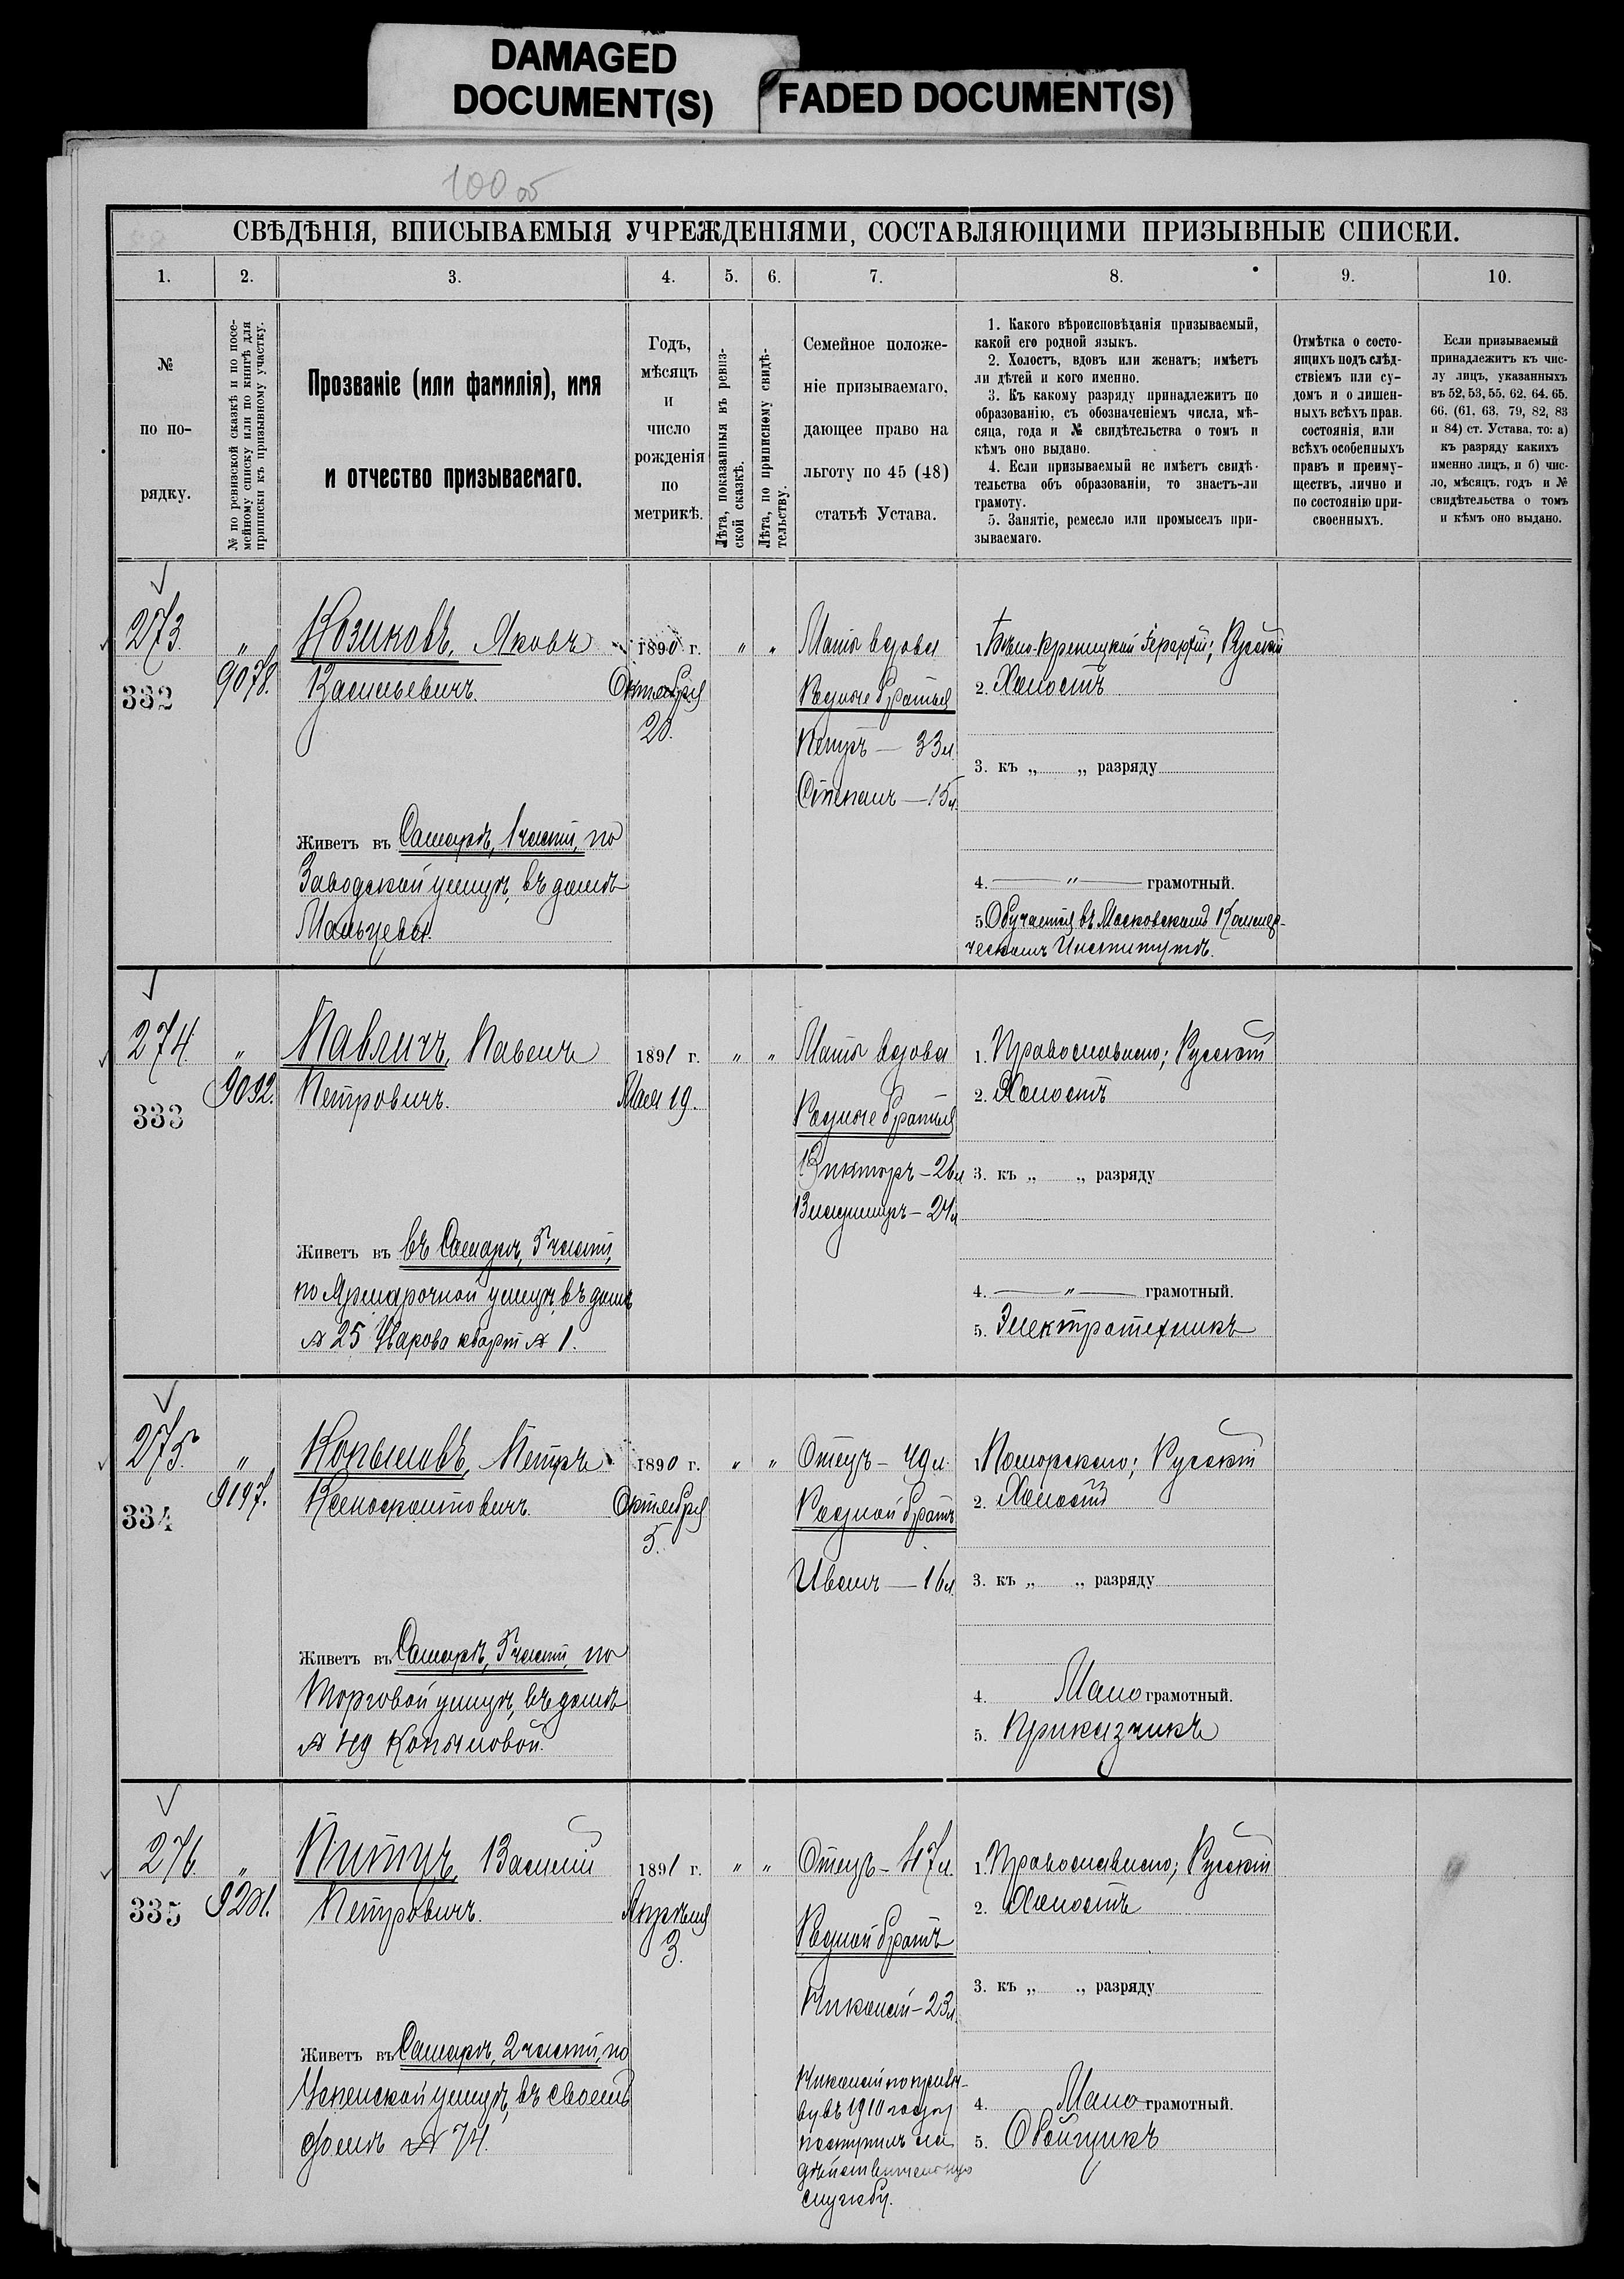 DAMAGED
DOCUMENT(S)
FADED DOCUMENT(S)
100 об
СВѢДѢНІЯ, ВПИСЫВАЕМЫЯ УЧРЕЖДЕНІЯМИ, СОСТАВЛЯЮЩИМИ ПРИЗЫВНЫЕ СПИСКИ.
1. 2. 3. 4. 5. 6. 7. 8. 9. 10.
№
по по-
рядку.
№ по ревизской сказкѣ и по посе-
мейному списку или по книгѣ для
приписки къ призывному участку.
Прозваніе (или фамилія), имя
и отчество призываемаго.
Годъ,
мѣсяцъ
и
число
рожденія
по
метрикѣ.
Лѣта, показанныя въ ревиз-
ской сказкѣ.
Лѣта, по приписному свидѣ-
тельству.
Семейное положе-
ніе призываемаго,
дающее право на
льготу по 45 (48)
статьѣ Устава.
1. Какого вѣроисповѣданія призываемый,
какой его родной языкъ.
2. Холостъ, вдовъ или женатъ; имѣетъ
ли дѣтей и кого именно.
3. Къ какому разряду принадлежитъ по
образованію, съ обозначеніемъ числа, мѣ-
сяца, года и № свидѣтельства о томъ и
кѣмъ оно выдано.
4. Если призываемый не имѣетъ свидѣ-
тельства объ образованіи, то знаетъ-ли
грамоту.
5. Занятіе, ремесло или промыселъ при-
зываемаго.
Отмѣтка о состо-
ящихъ подъ слѣд-
ствіемъ или су-
домъ и о лишен-
ныхъ всѣхъ прав.
состоянія, или
всѣхъ особенныхъ
правъ и преиму-
ществъ, лично и
по состоянію при-
своенныхъ.
Если призываемый
принадлежитъ къ чис-
лу лицъ, указанныхъ
въ 52, 53, 55, 62, 64, 65,
66, (61, 63, 79, 82, 83
и 84) ст. Устава, то: а)
къ разряду какихъ
именно лицъ, и б) чис-
ло, мѣсяцъ, годъ и №
свидѣтельства о томъ
и кѣмъ оно выдано.
273.
332
"
9078.
Козиковъ, Яковъ
Васильевичъ.
Живетъ въ Самарѣ, 1 части, по
Заводской улицѣ, въ домѣ
Мальцева.
1890 г.
Октября
20.
" "
Мать вдова
Родные братья
Петръ — 33 л.
Степанъ — 15 л.
1. Бѣло-Криницкой Іерархіи; Русскій
2. Холостъ
3. къ „ „ разряду
4. — " — грамотный.
5. Обучается въ Московскомъ Коммер-
ческомъ Институтѣ.
274.
333
"
9092.
Павличъ, Павелъ
Петровичъ.
Живетъ въ въ Самарѣ, 5 части,
по Ярмарочной улицѣ, въ домѣ
№ 25 Уварова кварт № 1.
1891 г.
Мая 19.
" "
Мать вдова
Родные братья
Викторъ — 26 л
Владиміръ — 24 л
1. Православное; Русскій
2. Холостъ
3. къ „ „ разряду
4. — " — грамотный.
5. Электротехникъ
275.
334
"
9197.
Копыловъ, Петръ
Ксенофонтовичъ.
Живетъ въ Самарѣ, 5 части, по
Торговой улицѣ, въ домѣ
№ 49 Копыловой.
1890 г.
Октября
5.
" "
Отецъ — 49 л.
Родной братъ
Иванъ — 16 л.
1. Поморское; Русскій
2. Холостъ
3. къ „ „ разряду
4. Мало грамотный.
5. Приказчикъ
276.
335
"
9201.
Питцъ, Василій
Петровичъ.
Живетъ въ Самарѣ, 2 части, по
Успенской улицѣ, въ своемъ
домѣ № 74.
1891 г.
Апрѣля
3.
" "
Отецъ — 47 л.
Родной братъ
Николай — 23 л.
Николай по призы-
ву въ 1910 году
поступилъ на
дѣйствительную
службу.
1. Православное; Русскій
2. Холостъ
3. къ „ „ разряду
4. Мало грамотный.
5. Обойщикъ